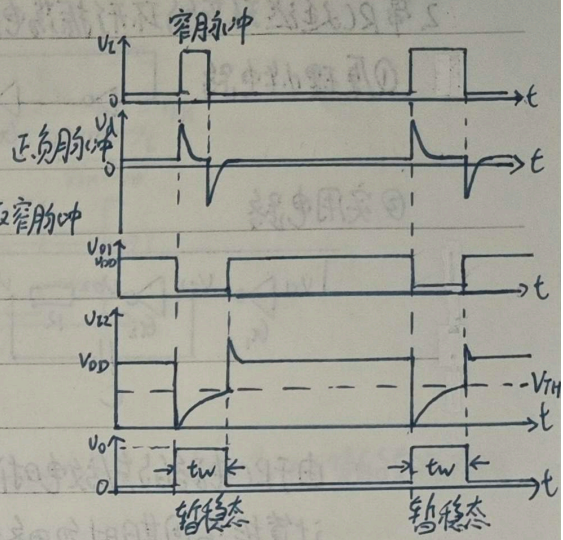 窄脉冲
UI
0
t
Ud
正负脉冲
0
t
窄脉冲
UO1
VDD
t
UI2
VDD
VTH
t
UO
0
tw
tw
t
暂稳态
暂稳态